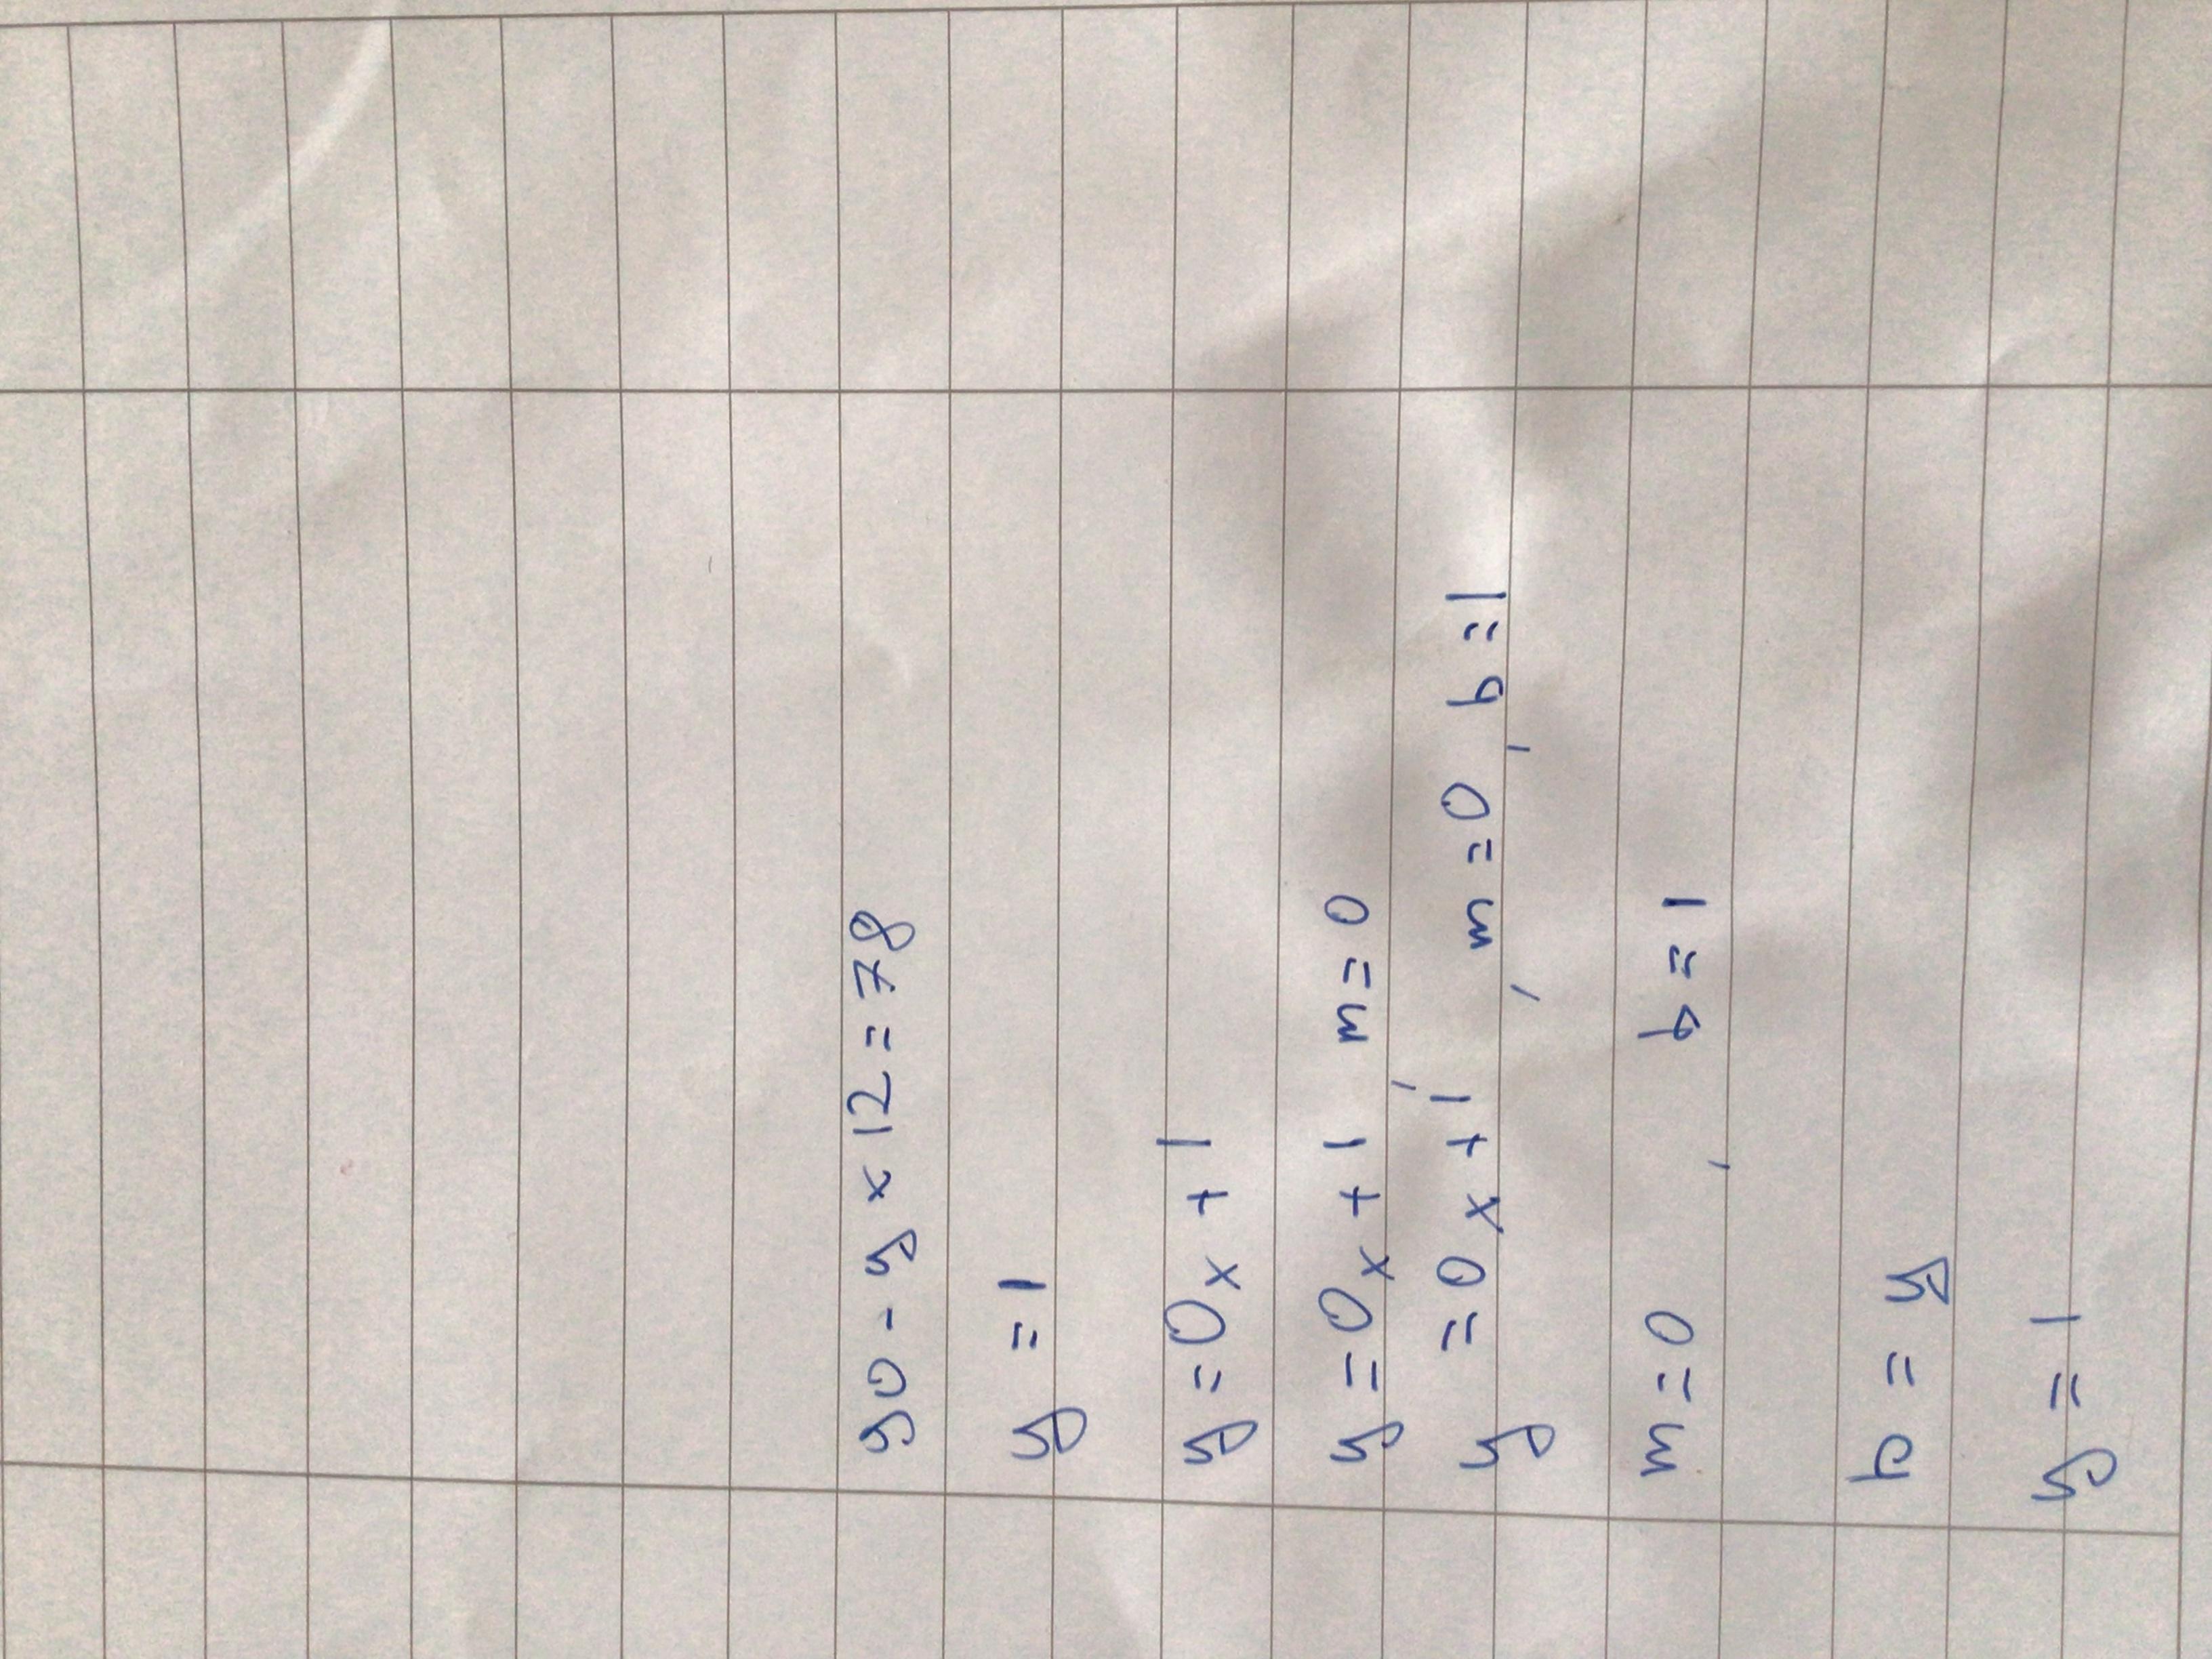 90 - y x 12 = 78
y = 1
y = 0x + 1
y = 0x + 1, m = 0
y = 0x + 1, m = 0, b = 1
m = 0, b = 1
b = y
y = 1